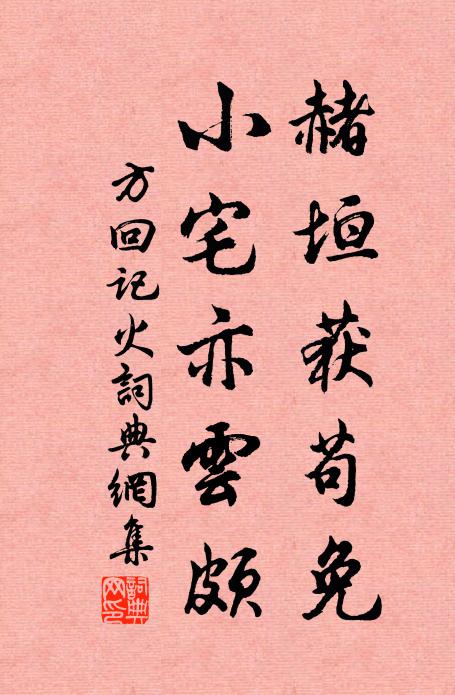 赭垣获苟免
小宅亦雲頗
方回記火詞典網集
詞典網印